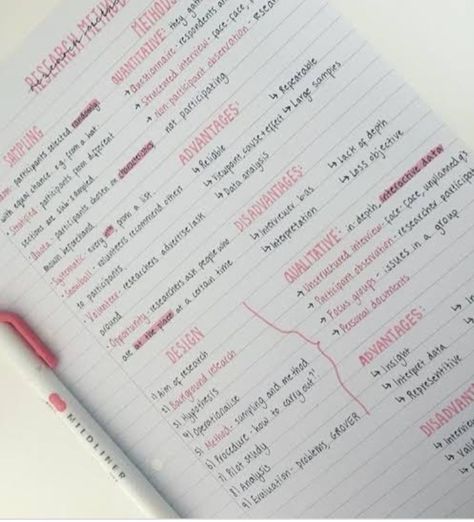 RESEARCH METHODS
SAMPLING
participants selected randomly
with equal chance. e.g. from a hat
Stratified participants from different
sections are sub-sampled.
Quota - participants chosen on characteristics
known beforehand
Systematic - every nth from a list
Snowball - volunteers recommend others
to participants
Volunteer - researchers advertise/ask
around
Opportunity - researchers ask people who
are at the place at a certain time
DESIGN
1) Aim of research
2) Background research
3) Hypothesis
4) Operationalise
5) Method - sampling and method
6) Procedure - how to carry out?
7) Pilot study
8) Analysis
9) Evaluation - problems, GROVER
METHODS
QUANTITATIVE: they
→ Questionnaire - respondents
→ Structured interview - face-face,
→ Non participant observation -
not participating
ADVANTAGES:
↳ Reliable
↳ Viewpoint, cause + effect
↳ Data analysis
↳ Repeatable
↳ Large samples
DISADVANTAGES:
↳ Interviewer bias
↳ Interpretation
↳ Lack of depth
↳ Loss objective
QUALITATIVE: in depth, interactive data
→ Unstructured interview - face-face, unplanned
→ Participant observation - researcher
→ Focus groups - issues in a group
→ Personal documents
ADVANTAGES:
↳ Insight
↳ Interpret data
↳ Representitive
DISADVANT
↳
MILDLINER